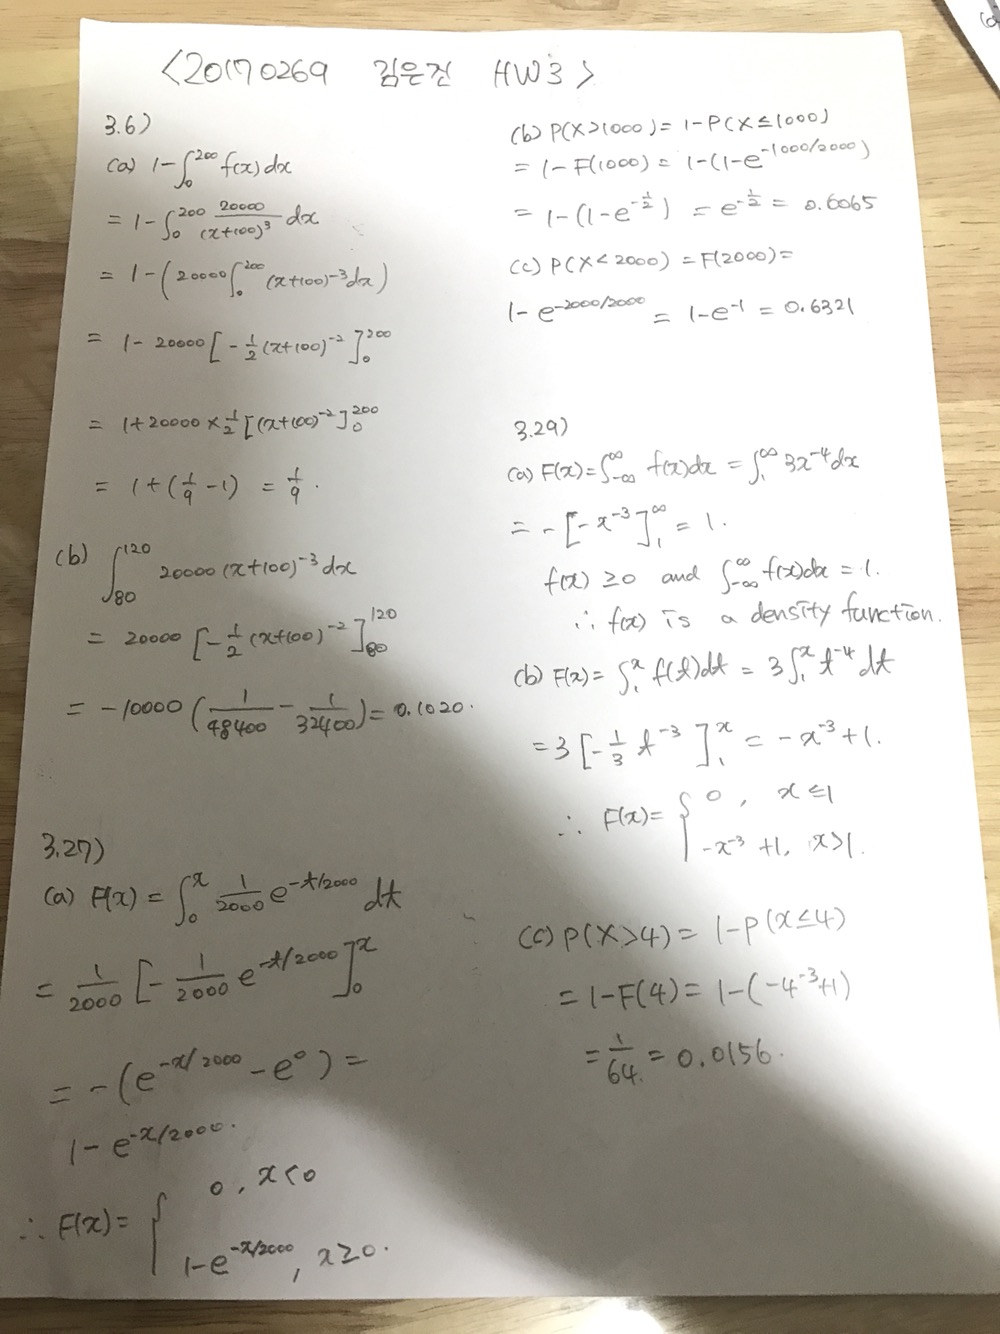 <20170269 김은진 HW3>
3.6)
(a) 1-∫₀²⁰⁰ f(x)dx
= 1-∫₀²⁰⁰ 20000/(x+100)³ dx
= 1-(20000∫₀²⁰⁰ (x+100)⁻³dx)
= 1-20000[-1/2(x+100)⁻²]₀²⁰⁰
= 1+20000×1/2[(x+100)⁻²]₀²⁰⁰
= 1+(1/9-1) = 1/9.
(b) ∫₈₀¹²⁰ 20000(x+100)⁻³dx
= 20000[-1/2(x+100)⁻²]₈₀¹²⁰
= -10000(1/48400 - 1/32400) = 0.1020.
3.27)
(a) F(x) = ∫₀ˣ 1/2000 e^(-t/2000) dt
= 1/2000[-1/2000 e^(-t/2000)]₀ˣ
= -(e^(-x/2000) - e⁰) =
1-e^(-x/2000).
∴ F(x) = { 0, x<0
1-e^(-x/2000), x≥0.
(b) P(X>1000) = 1-P(X≤1000)
= 1-F(1000) = 1-(1-e^(-1000/2000))
= 1-(1-e^(-1/2)) = e^(-1/2) = 0.6065
(c) P(X<2000) = F(2000) =
1-e^(-2000/2000) = 1-e⁻¹ = 0.6321
3.29)
(a) F(x) = ∫_(-∞)^∞ f(x)dx = ∫₁^∞ 3x⁻⁴dx
= -[-x⁻³]₁^∞ = 1.
f(x) ≥0 and ∫_(-∞)^∞ f(x)dx = 1.
∴ f(x) is a density function.
(b) F(x) = ∫₁ˣ f(t)dt = 3∫₁ˣ t⁻⁴dt
= 3[-1/3 t⁻³]₁ˣ = -x⁻³+1.
∴ F(x) = { 0, x≤1
-x⁻³+1, x>1.
(c) P(X>4) = 1-P(x≤4)
= 1-F(4) = 1-(-4⁻³+1)
= 1/64. = 0.0156.